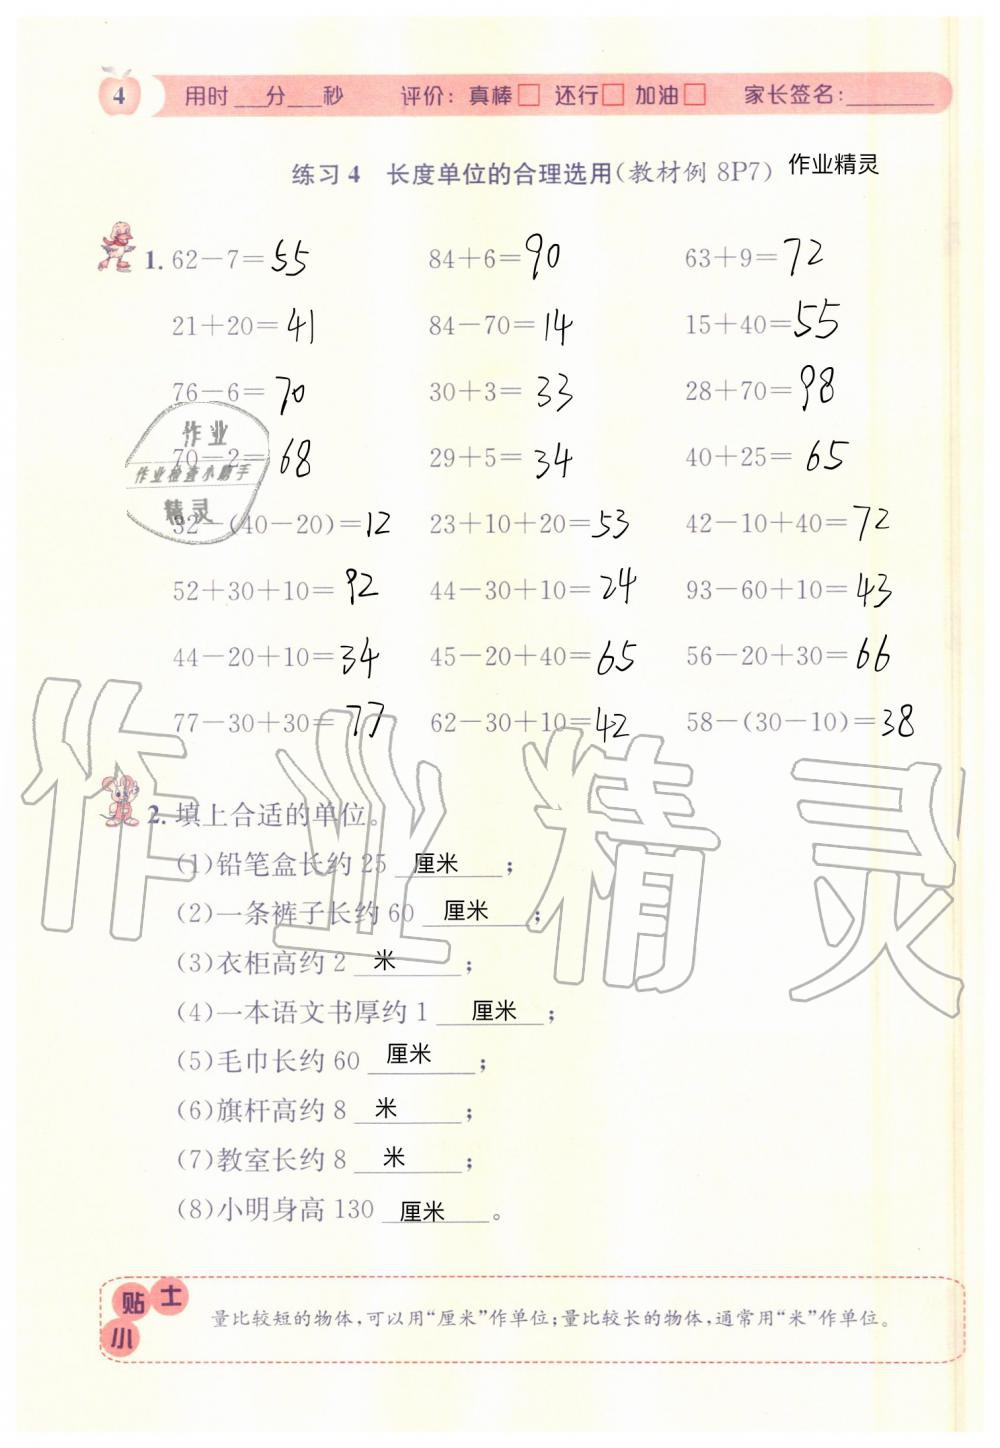 4 用时___分___秒 评价：真棒□ 还行□ 加油□ 家长签名：______
练习4 长度单位的合理选用(教材例8P7) 作业精灵
1. 62－7＝55 84＋6＝90 63＋9＝72
21＋20＝41 84－70＝14 15＋40＝55
76－6＝70 30＋3＝33 28＋70＝98
70－2＝68 29＋5＝34 40＋25＝65
32－(40－20)＝12 23＋10＋20＝53 42－10＋40＝72
52＋30＋10＝92 44－30＋10＝24 93－60＋10＝43
44－20＋10＝34 45－20＋40＝65 56－20＋30＝66
77－30＋30＝77 62－30＋10＝42 58－(30－10)＝38
作业
作业检查小助手
精灵
作业精灵
2. 填上合适的单位。
(1)铅笔盒长约25 厘米；
(2)一条裤子长约60 厘米；
(3)衣柜高约2 米；
(4)一本语文书厚约1 厘米；
(5)毛巾长约60 厘米；
(6)旗杆高约8 米；
(7)教室长约8 米；
(8)小明身高130 厘米。
小贴士
量比较短的物体，可以用“厘米”作单位；量比较长的物体，通常用“米”作单位。